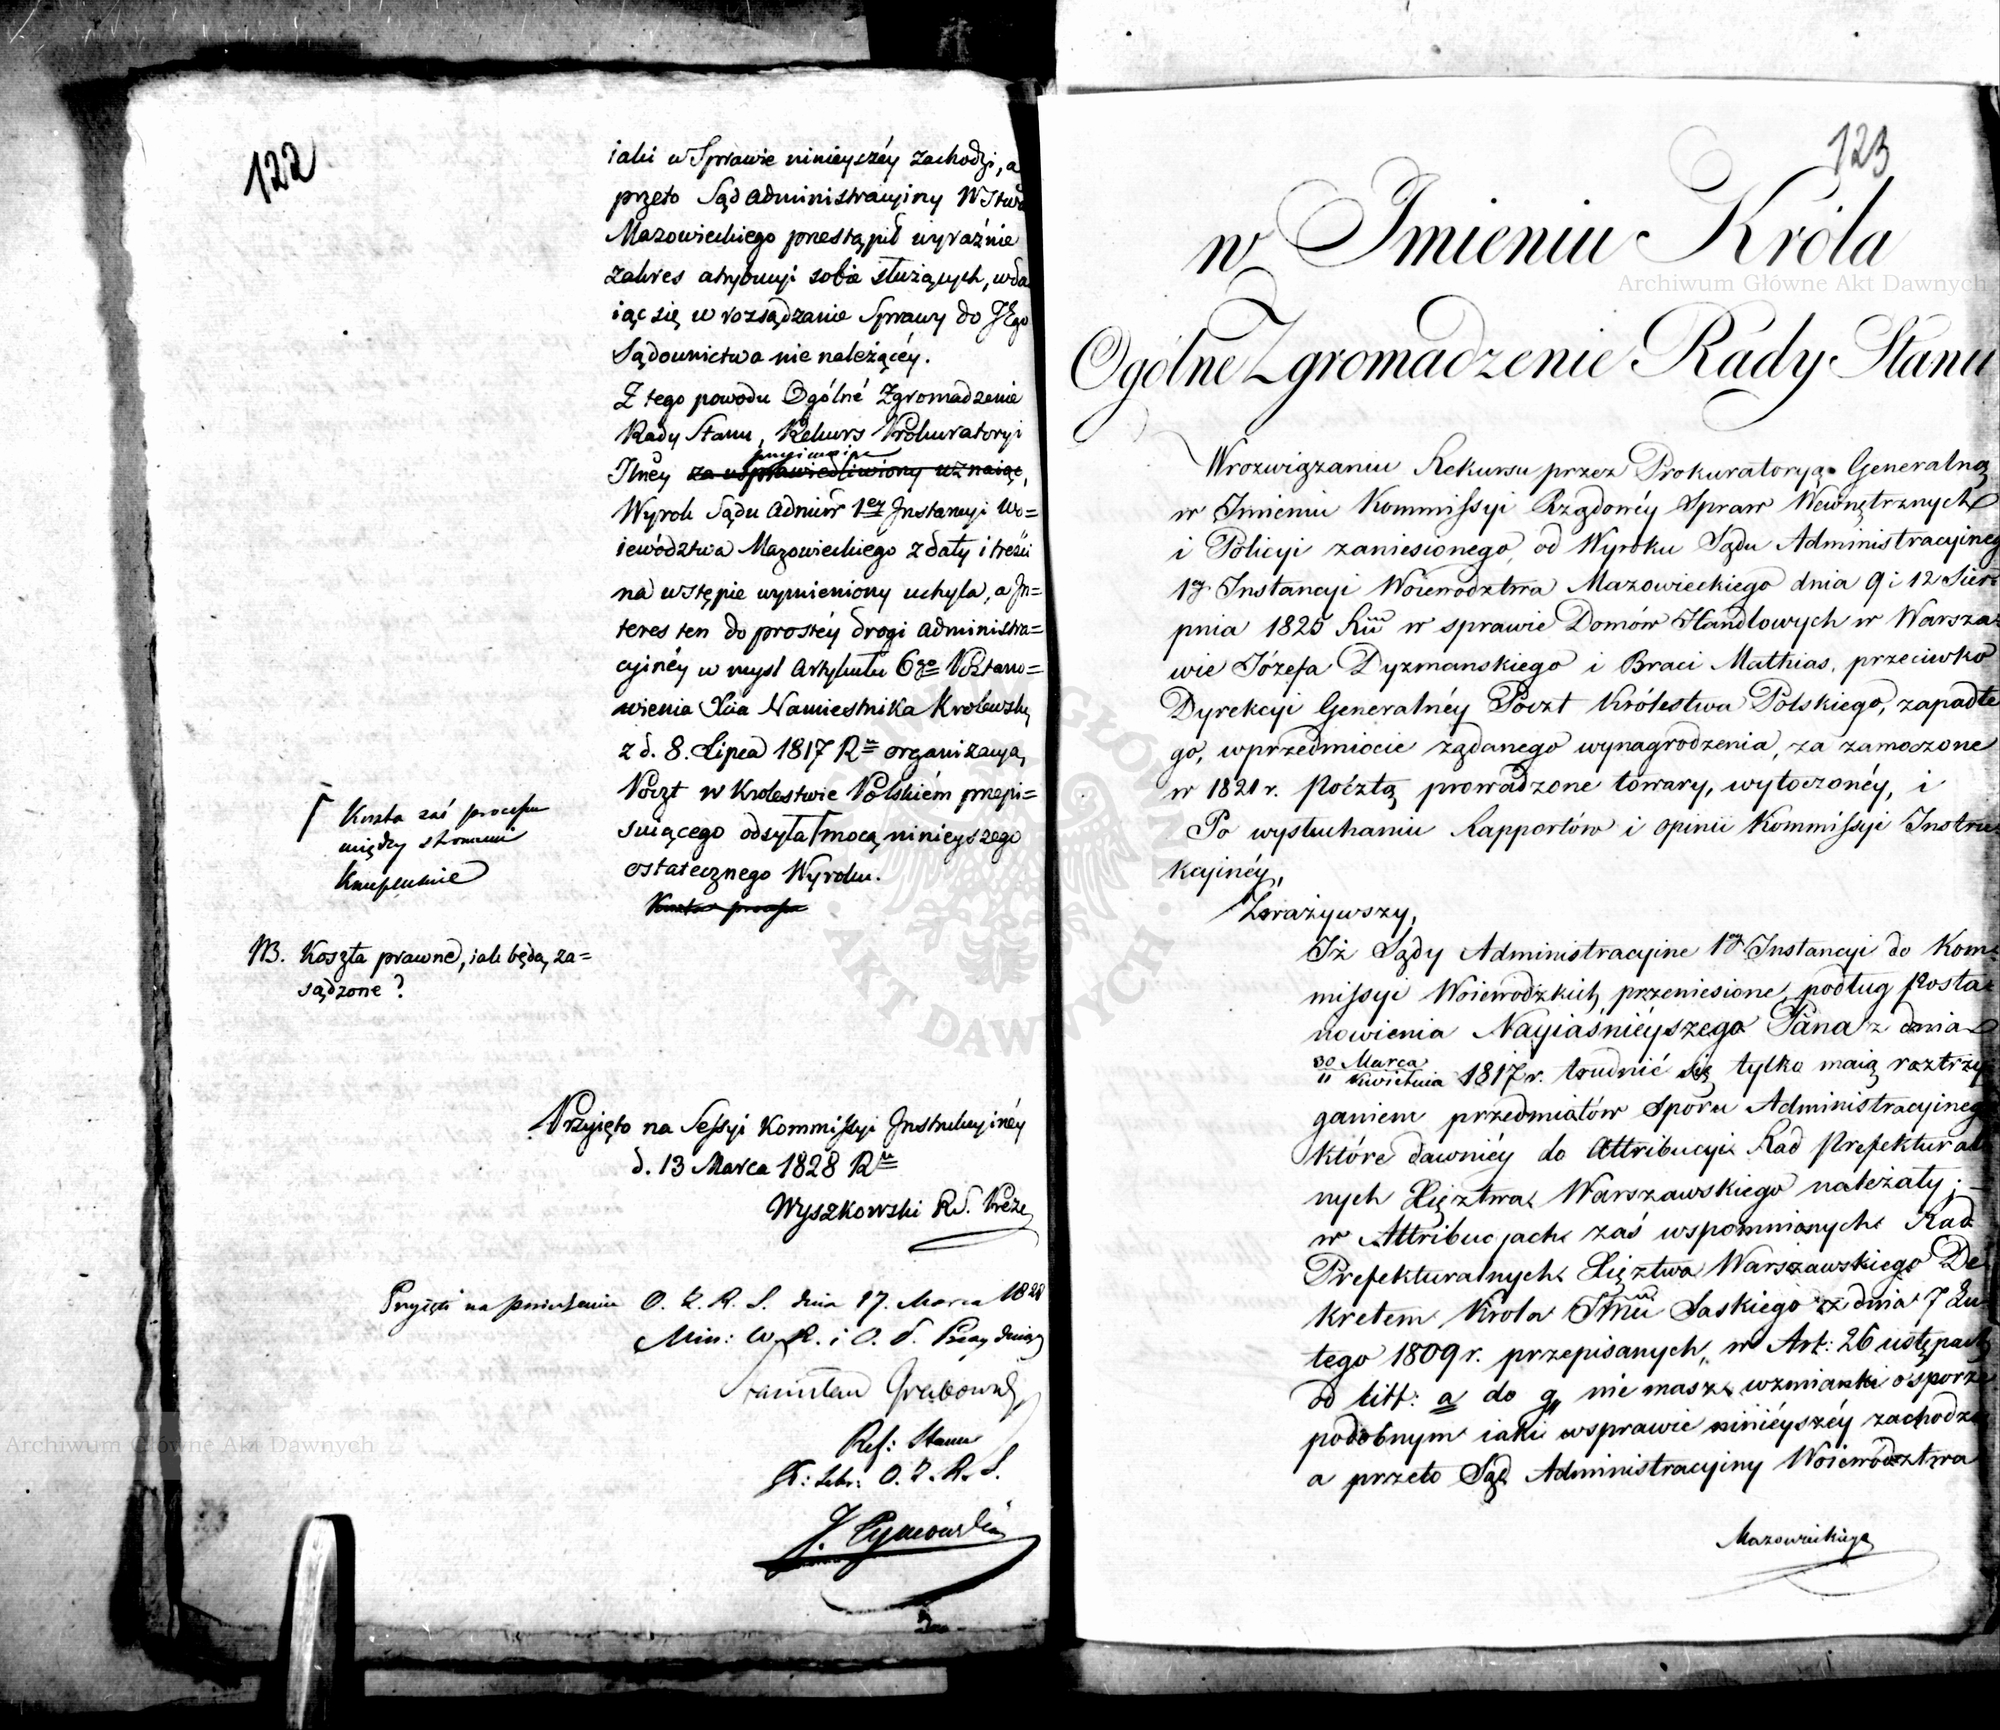 122
iaki w Sprawie ninieyszéy zachodzi, a
przeto Sąd Administracyiny Wstwa
Mazowieckiego przestąpił wyraźnie
zakres atrybucyi sobie służących, wda
iąc się w rozsądzanie Sprawy do JEgo
Sądownictwa nie należącéy.
Z tego powodu Ogólné Zgromadzenie
Rady Stanu, Rekurs Prokuratoryi
przyimuiąc
Jlnéy za usprawiedliwiony uznaiąc,
Wyrok Sądu Admin̄ 1ey Jnstancyi Wo=
iewództwa Mazowieckiego z daty i treści
na wstępie wymieniony uchyla, a Jn=
teres ten do prostéy drogi administra=
cyinéy w mysl Artykułu 6go Postano=
wienia Xcia Namiestnika Krolewsk:
z d. 8. Lipca 1817 Ru organizacyą
Poczt w Krolestwie Polskiém przepi=
suiącego odsyła Γ mocą ninieyszego
ostatecznego Wyroku.
Koszta processu
Γ Koszta zaś processu
między stronami
kompensuie
NB. Koszta prawne, iak będą za=
sądzone?
Przyięto na Sessyi Kommissyi Jnstrukcyinéy
d. 13 Marca 1828 Ru
Wyszkowski Rd. Preze
Przyięto na posiedzeniu O. Z. R. S. dnia 17. Marca 1828
Min: W. R. i O. P. Prezyduiąc
Stanisław Grabowski
Ref: Stanu
Z: Sekr: O. Z. R. S.
J. Tymowski
123
w Imieniu Króla
Ogólne Zgromadzenie Rady Stanu
W rozwiązaniu Rekursu przez Prokuratoryą Generalną
w Imieniu Kommissyi Rządowéy Spraw Wewnętrznych
i Policyi zaniesionego, od Wyroku Sądu Administracyineg
1ey Instancyi Woiewodztwa Mazowieckiego dnia 9 i 12 Sier=
pnia 1825 Ru w sprawie Domów Handlowych w Warsza=
wie Józefa Dyzmanskiego i Braci Mathias, przeciwko
Dyrekcyi Generalnéy Poczt Królestwa Polskiego, zapadłe
go, w przedmiocie żądanego wynagrodzenia, za zamoczone
w 1821 r. Pocztą prowadzone towary, wytoczonéy, i
Po wysłuchaniu Rapportów i opinii Kommissyi Instru
kcyinéy,
Zważywszy,
Iż Sądy Administracyine 1ey Instancyi do Kom=
missyi Woiewodzkich przeniesione, podług Posta=
nowienia Nayiaśniéyszego Pana z dnia
30 Marca
11 Kwietnia 1817 r. trudnić się tylko maią roztrzy
ganiem przedmiotów sporu Administracyinego
które dawniéy do Attribucyi Rad Prefektural
nych Xięztwa Warszawskiego należały; —
w Attribucjach zaś wspomnionych Rad
Prefekturalnych Xięztwa Warszawskiego De=
kretem Krola Jmci Saskiego z dnia 7 Lu=
tego 1809 r. przepisanych, w Art: 26 ustępach
od litt: a do g, nie masz wzmianki o sporze
podobnym iaki w sprawie niniéyszéy zachodzi
a przeto Sąd Administracyiny Woiewództwa
Mazowieckiego
Archiwum Główne Akt Dawnych
Archiwum Główne Akt Dawnych